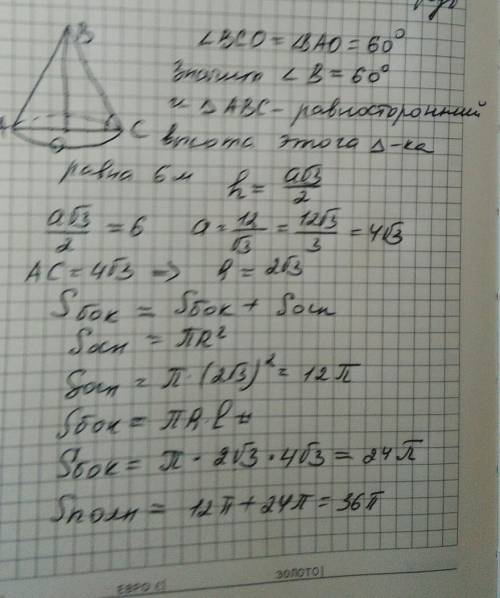 B
∠BCO = ∠BAO = 60°
Значит ∠B = 60°
и △ABC - равносторонний
A O C
высота этого △-ка
равна 6 м h = a√3/2
a√3/2 = 6 a = 12/√3 = 12√3/3 = 4√3
AC = 4√3 => R = 2√3
Sбок = Sбок + Sосн
Sосн = πR²
Sосн = π · (2√3)² = 12π
Sбок = πR·l =
Sбок = π · 2√3 · 4√3 = 24π
Sполн = 12π + 24π = 36π
ЕВРО
ЗОЛОТО